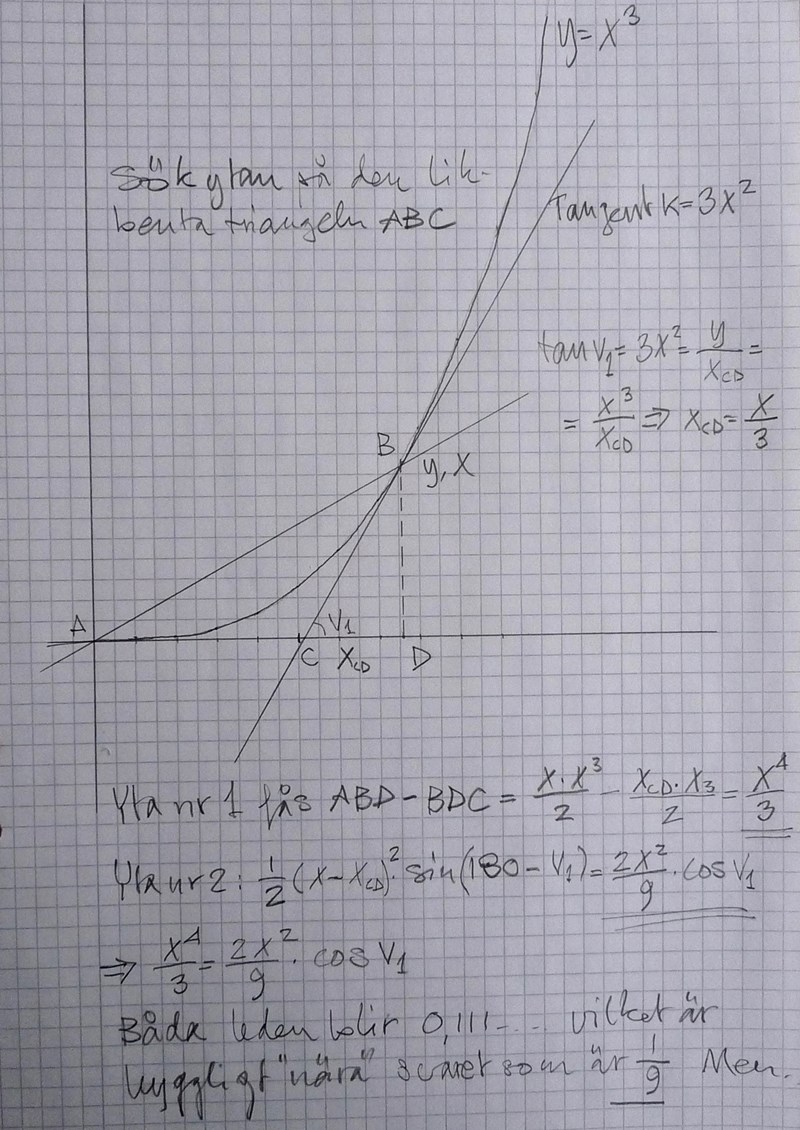 y = x³
Sök ytan på den lik-
benta triangeln ABC
Tangent K = 3x²
tan V₁ = 3x² = y/x_CD =
= x³/x_CD ⇒ x_CD = x/3
B
y, x
A
V₁
C x_CD D
Yta nr 1 fås ABD - BDC = x·x³/2 - x_CD·x₃/2 = x⁴/3
Yta nr 2: 1/2 (x - x_CD)²· sin(180 - V₁) = 2x²/9 · cos V₁
⇒ x⁴/3 = 2x²/9 · cos V₁
Båda leden blir 0,111-... vilket är
hyggligt "nära" svaret som är 1/9 Men.